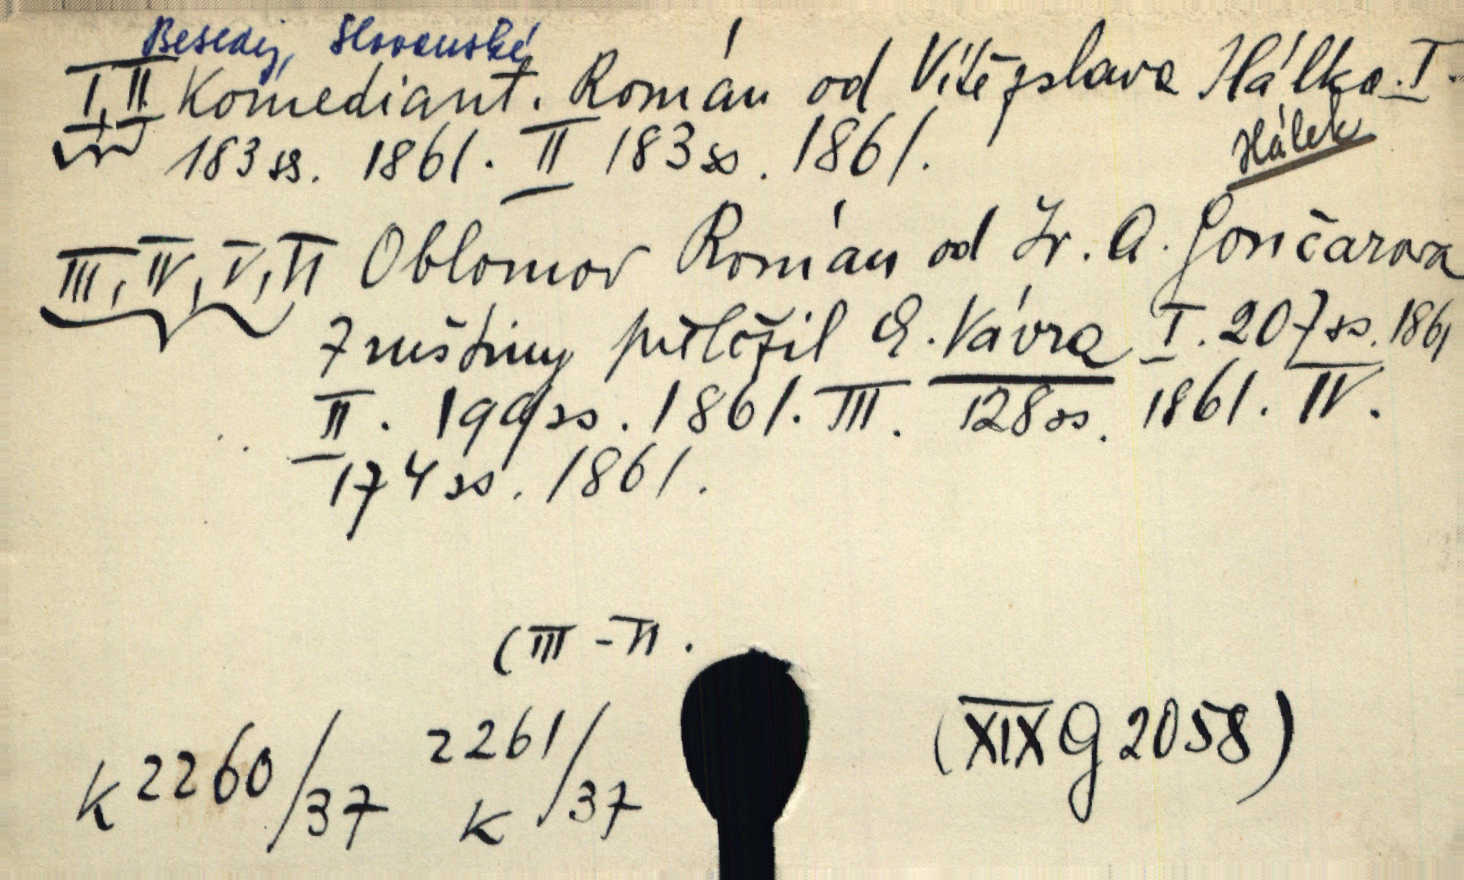 Besedy, Slovanské
I, II Komediant. Román od Vítězslava Hálka. I.
183 ss. 1861. II 183 ss. 1861.
Hálek
III, IV, V, VI Oblomov Román od Iv. A. Gončarova
Z ruštiny přeložil E. Vávra I. 207 ss. 1861
II. 199 ss. 1861. III. 128 ss. 1861. IV.
174 ss. 1861.
(III - VI.
K 2260/37 2261/37 K
(XIX G 2058)